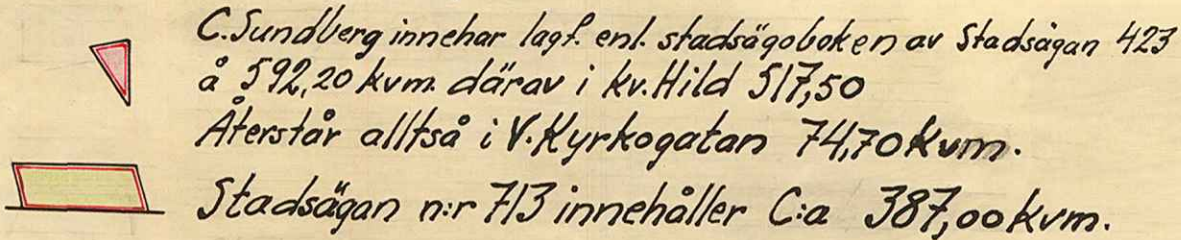 C.Sundberg innehar lagf. enl. stadsägoboken av Stadsägan 423
å 592,20 kvm. därav i kv. Hild 517,50
Återstår alltså i V. Kyrkogatan 74,70 kvm.
Stadsägan n:r 713 innehåller C:a 387,00 kvm.